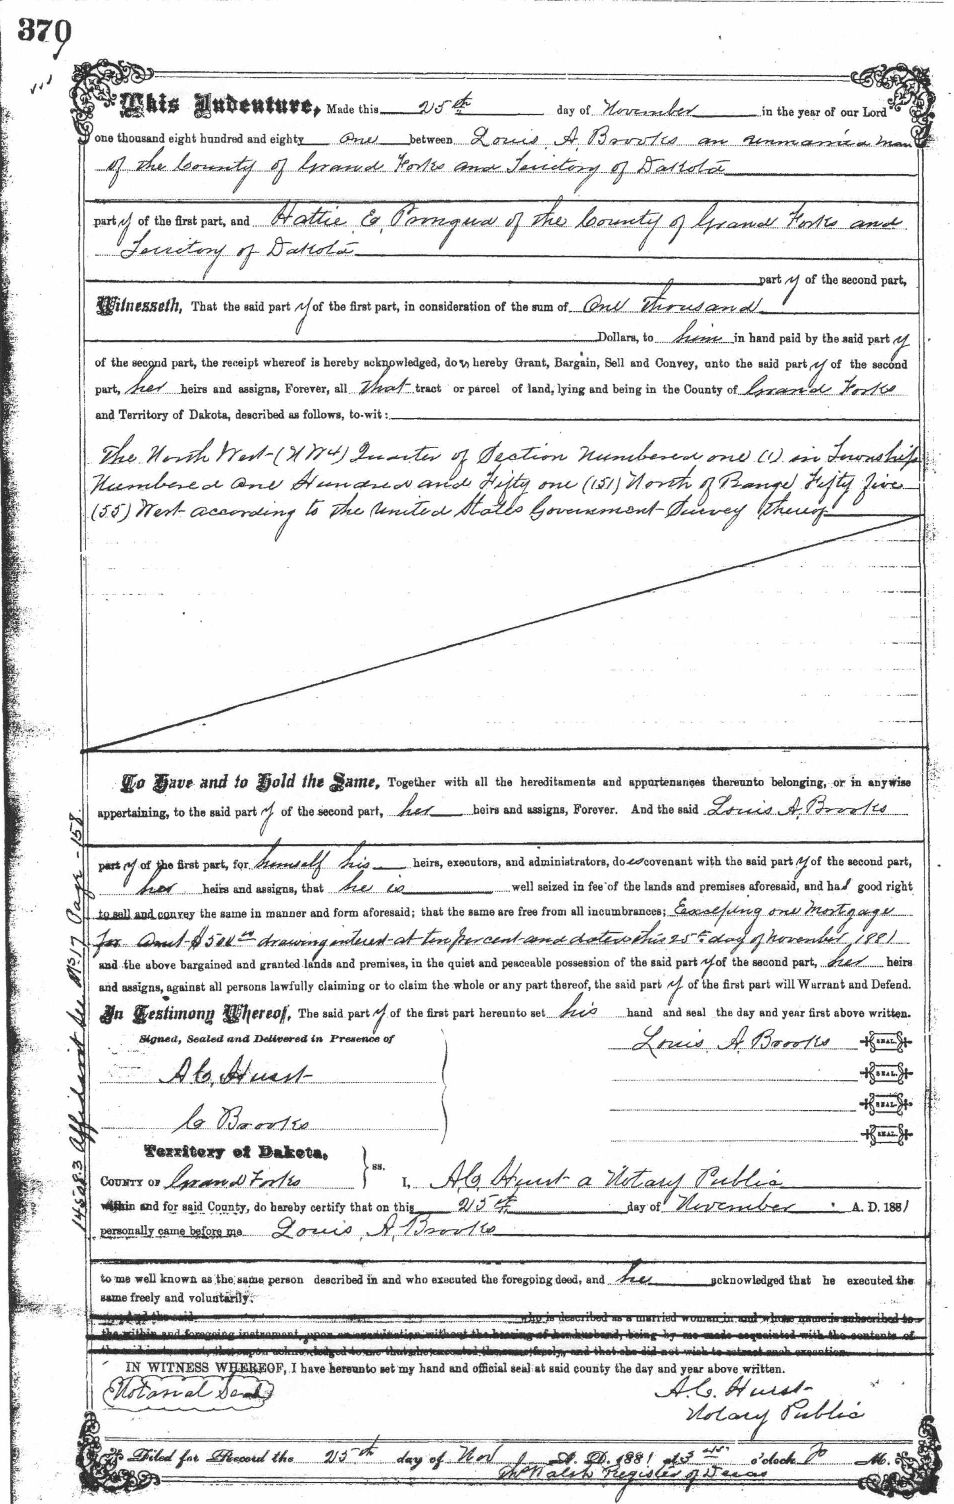 370
This Indenture, Made this 25th day of November in the year of our Lord
one thousand eight hundred and eighty one between Louis A. Brooks an unmarried man
of the County of Grand Forks and Territory of Dakota
party of the first part, and Hattie E. of the County of Grand Forks and
Territory of Dakota
party of the second part,
Witnesseth, That the said party of the first part, in consideration of the sum of One Thousand
Dollars, to him in hand paid by the said party
of the second part, the receipt whereof is hereby acknowledged, do hereby Grant, Bargain, Sell and Convey, unto the said party of the second
part, her heirs and assigns, Forever, all that tract or parcel of land, lying and being in the County of Grand Forks
and Territory of Dakota, described as follows, to-wit:
The North West (NW4) Quarter of Section Numbered one (1) in Township
Numbered One Hundred and Fifty one (151) North of Range Fifty five
(55) West according to the United States Government Survey thereof
To Have and to Hold the Same, Together with all the hereditaments and appurtenances thereunto belonging, or in anywise
appertaining, to the said party of the second part, her heirs and assigns, Forever. And the said Louis A. Brooks
party of the first part, for himself his heirs, executors, and administrators, does covenant with the said party of the second part,
her heirs and assigns, that he is well seized in fee of the lands and premises aforesaid, and has good right
to sell and convey the same in manner and form aforesaid; that the same are free from all incumbrances; Excepting one Mortgage
for Amt $500 00 drawing interest at ten per cent and dated this 25th day of November 1881
and the above bargained and granted lands and premises, in the quiet and peaceable possession of the said party of the second part, her heirs
and assigns, against all persons lawfully claiming or to claim the whole or any part thereof, the said party of the first part will Warrant and Defend.
In Testimony Whereof, The said party of the first part hereunto set his hand and seal the day and year first above written.
Signed, Sealed and Delivered in Presence of
Louis A. Brooks SEAL.
A. C. Hurst SEAL.
SEAL.
C Brooks SEAL.
Territory of Dakota,
COUNTY OF Grand Forks ss. I, A. C. Hurst a Notary Public
within and for said County, do hereby certify that on this 25th day of November A. D. 1881
personally came before me Louis A. Brooks
to me well known as the same person described in and who executed the foregoing deed, and he acknowledged that he executed the
same freely and voluntarily.
And the said who is described as a married woman in and whose name is subscribed to
the within and foregoing instrument, upon an examination without the hearing of her husband, being by me made acquainted with the contents of
the said instrument, thereupon acknowledged to me that she executed the same freely, and that she did not wish to retract such execution.
IN WITNESS WHEREOF, I have hereunto set my hand and official seal at said county the day and year above written.
Notarial Seal
A. C. Hurst
Notary Public
Filed for Record the 25th day of Nov A. D. 1881 at 3 45 o'clock P M.
Walsh Register of Deeds
145083 Affidavit See No 17 Page - 158.